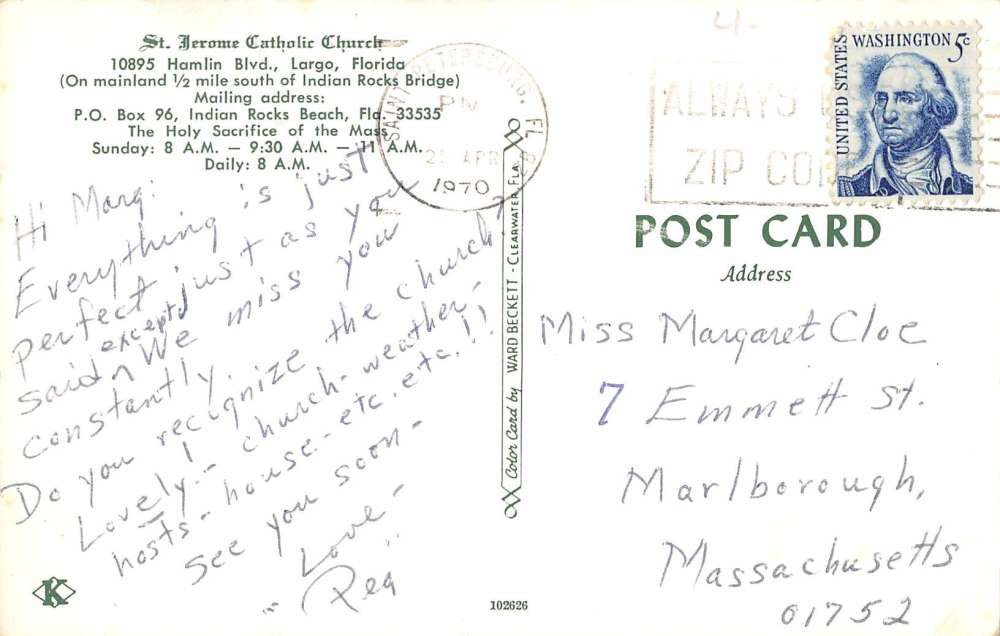 St. Jerome Catholic Church
10895 Hamlin Blvd., Largo, Florida
(On mainland 1/2 mile south of Indian Rocks Bridge)
Mailing address:
P.O. Box 96, Indian Rocks Beach, Fla. 33535
The Holy Sacrifice of the Mass
Sunday: 8 A.M. — 9:30 A.M. — 11 A.M.
Daily: 8 A.M.
Hi Marg:
Everything is just
perfect just as you
said except We miss you
constantly.
Do you recignize the church?
Lovely - church - weather -
hosts - house - etc. etc.!!
See you soon -
Love -
Peg
102626
Color Card by WARD BECKETT - CLEARWATER, FLA.
SAINT PETERSBURG, FL
PM
25 APR
1970
ALWAYS
ZIP CODE
4-
UNITED STATES
WASHINGTON 5c
POST CARD
Address
Miss Margaret Cloe
7 Emmett St.
Marlborough,
Massachusetts
01752
K